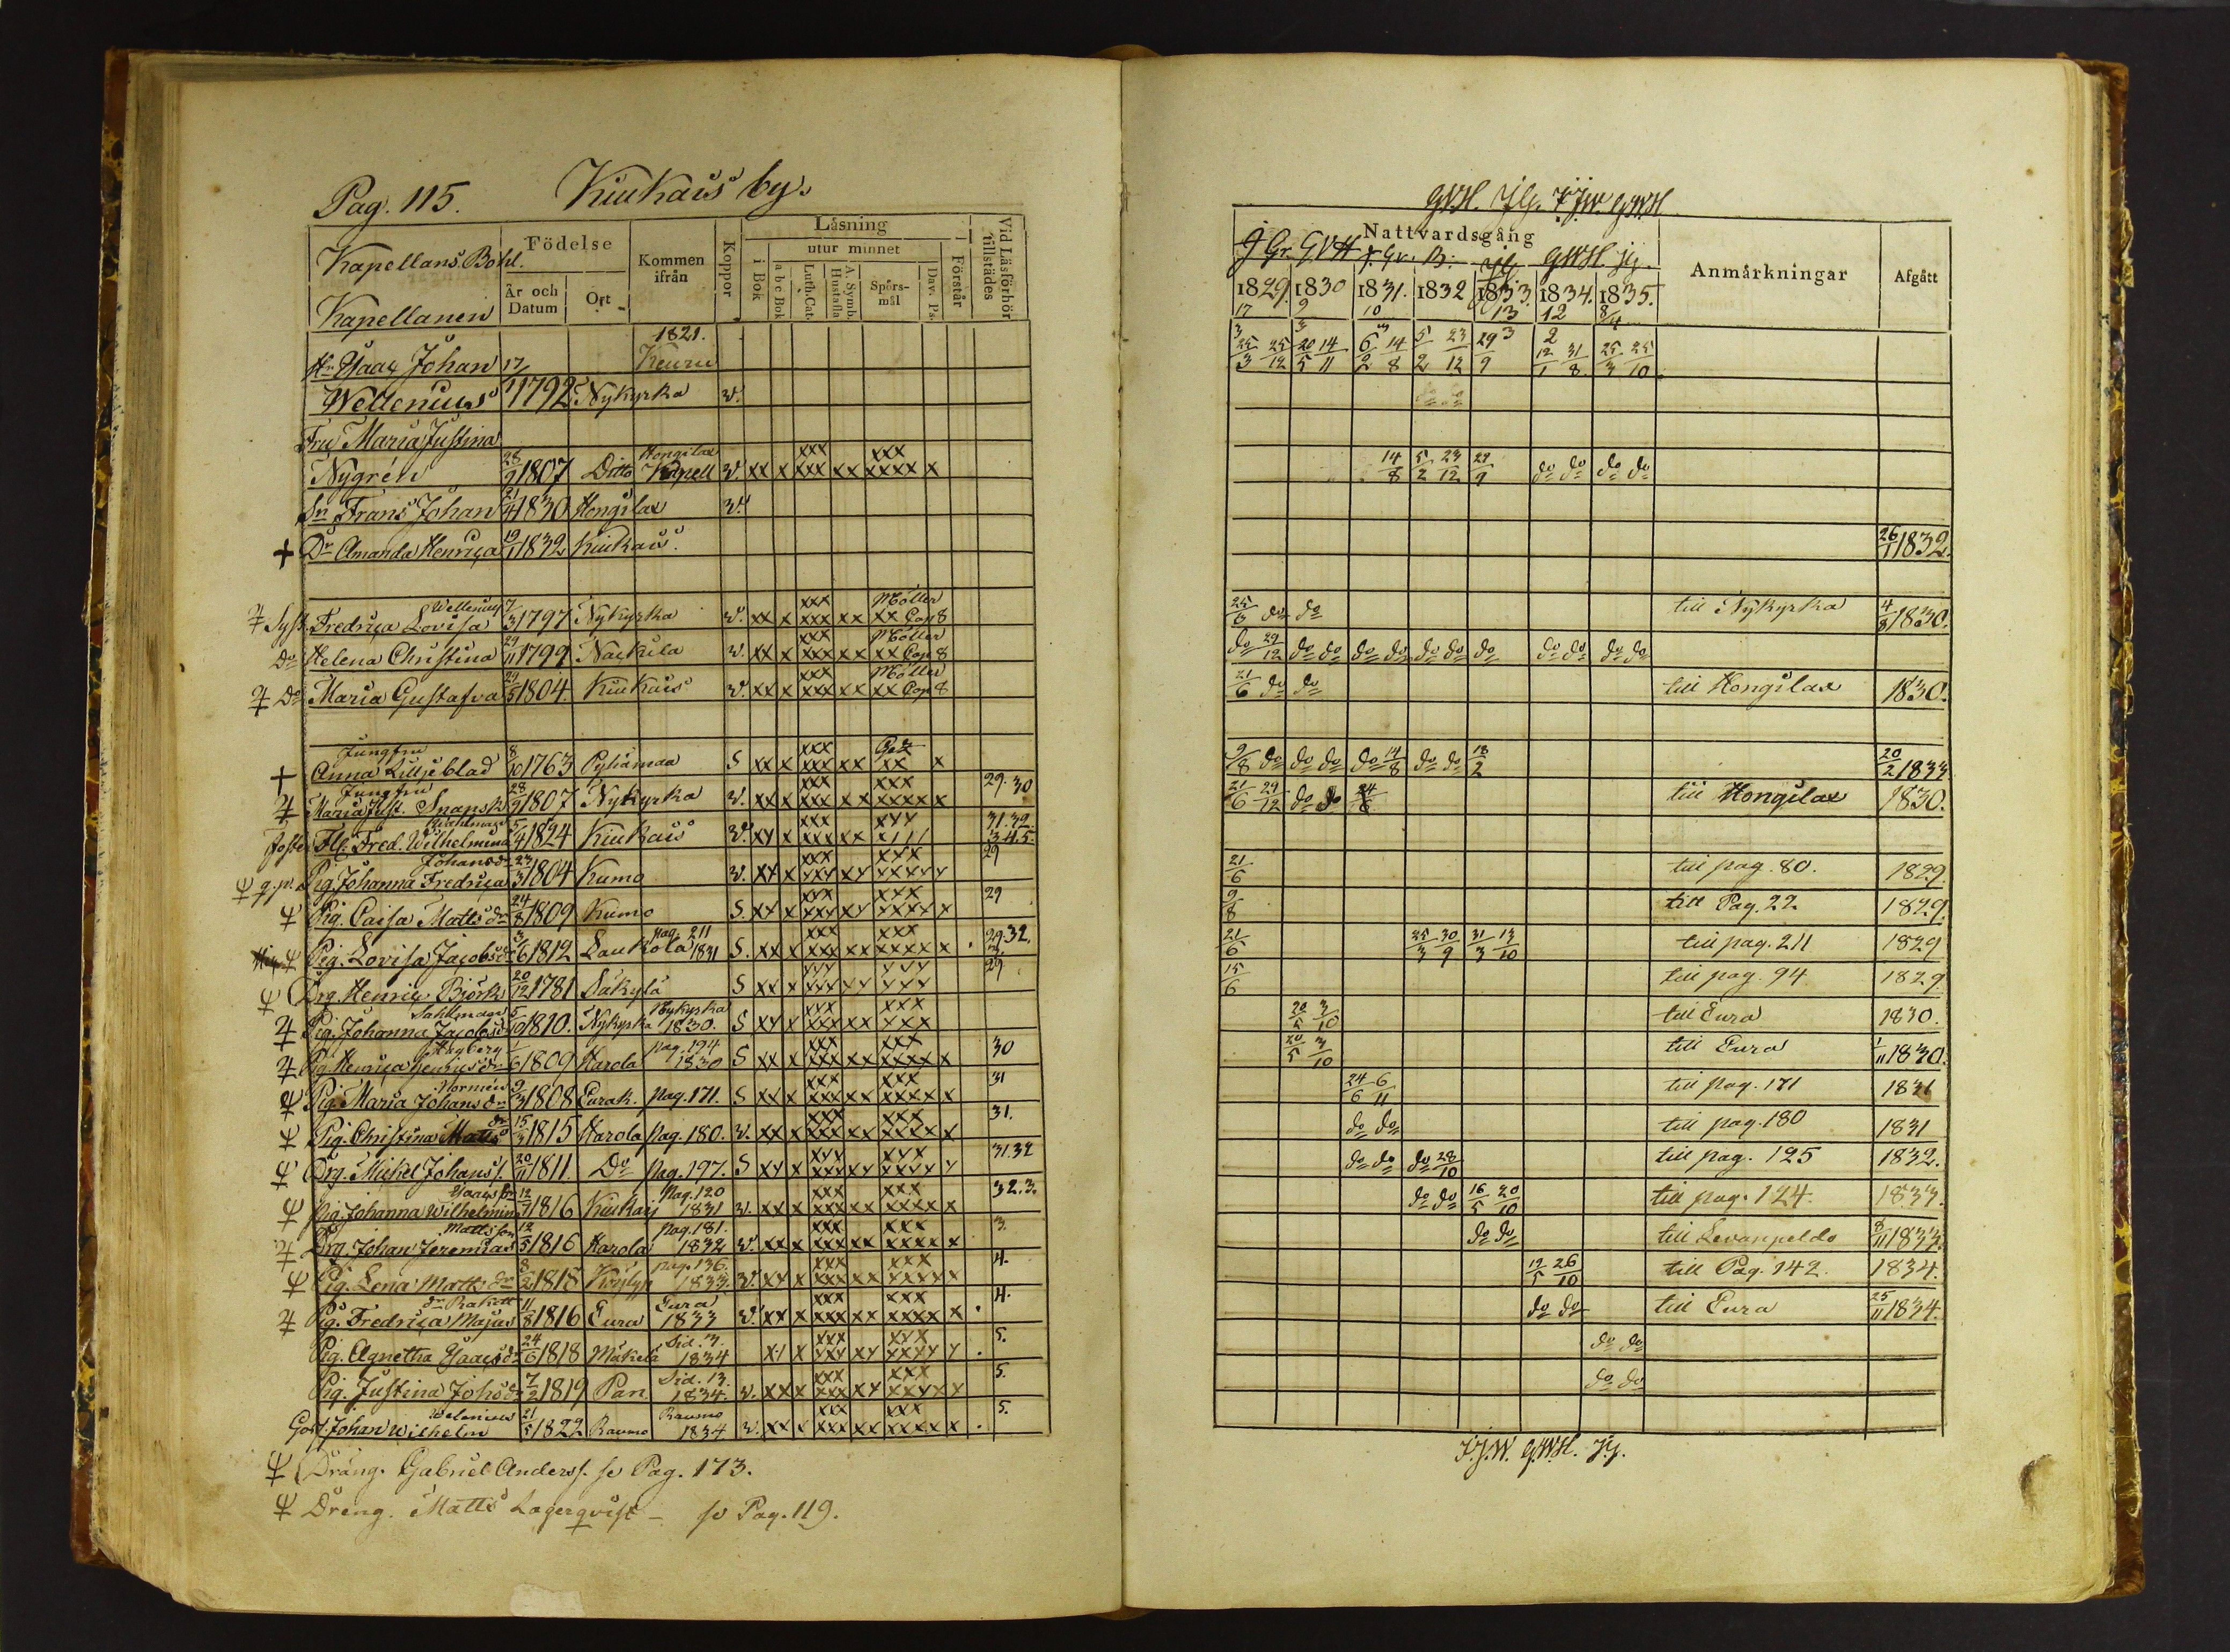 Pag. 115. Kiukais by.
Kapellans Bohl.
Kapellanen
Födelse
År och Datum
Ort
Kommen ifrån
Koppor
Läsning
i Bok
utur minnet
a b c Bok
Luth. Cat.
A. Symb. Hustafla
Spörs-mål
Dav. Ps.
Förstår
Vid Läsförhör tillstädes
Hr Isaac Johan 17/ 1821. Keuru
Wellenius 11 1792 Nykyrka v.
Fru Maria Justina
Nygren 28/9 1807 Ditto Hongilax Kapell v. xx x xxx xxx xx xxx xxxx x
Sn Frans Johan 21/4 1830 Hongilax v.
+ Dr Amanda Henrica 19/1 1832 Kiukais.
Syst. Fredrica Lovisa Wellenius 7/3 1797 Nykyrka v. xx x xxx xxx xx Möller xx Cap 8
Do Helena Christina 29/11 1799 Nackila v. xx x xxx xxx xx Möller xx Cap 8
Do Maria Gustafva 29/5 1804. Kiukais v. xx x xxx xxx xx Möller xx Cap 8
+ Jungfru Anna Liljeblad 8/10 1763 Pyhämaa S xx x xxx xxx xx xx x
Jungfru Maria Just. 28/9 1807 Nykyrka v. xx x xxx xxx xx xxx xxxx x 29. 30
Fl. Fred. Wilhelmina 5/4 1824 Kiukais v. xx x xxx xxx xx xxx 31. 32. 3. 4. 5.
Pig. Johanna Fredrica Johansdr 23/3 1804 Kumo v. xx x xxx xxx xx xxx xxxxx 29
Pig. Caisa Mattsdr 24/8 1809 Kumo S. xx x xxx xxx xx xxx xxxx x 29
Pig. Lovisa Jacobsdr 3/6 1812 Laukola pag. 211 1831 S. xx x xxx xxx xx xxx xxxx x 29. 32. 3.
Drg. Henric Björk 20/12 1781 Säkylä S xx x xxx xxx xx xxx xxx 29
Pig. Johanna Jacobsdr Sahlman 5/10 1810. Nykyrka Nykyrka 1830. S xx x xxx xxx xx xxx xxx
Pig. Henrica Henricsdr Högberg /6 1809 Harola pag. 194 1830 S xx x xxx xxx xx xxx xxxx x 30
Pig. Maria Johansdr Normén 9/3 1808 Eurak. pag. 171. S xx x xxx xxx xx xxx xxxx x 31
Pig. Christina Matts dr 15/3 1815 Harola pag. 180. v. xx x xxx xxx xx xxx xxxx x 31.
Drg. Michel Johans s. 20/11 1811. Do pag. 197. S xx x xxx xxx xx xxx xxxx x 31. 32
Pig. Johanna Wilhelmina 12/7 1816 Kiukais pag. 120 1831 v. xx x xxx xxx xx xxx xxxx x 32. 3.
Drg. Johan Jeremias Mattsson 12/5 1816 Harola pag. 181. 1832 v. xx x xxx xxx xx xxx xxxx x 3.
Pig. Lena Matts dr 8/2 1818 Köylyo pag. 136. 1833. v. xx x xxx xxx xx xxx xxxx x 4.
Pig. Fredrica Majas dr Rakett 11/8 1816 Eura Eura 1833 v. xx x xxx xxx xx xxx xxxx x 4.
Pig. Agnetha Isaacsdr 24/6 1818 Mäkelä Sid. 3. 1834 xx x xxx xxx xx xxx xxxx x 5.
Pig. Justina Johsdr 7/2 1819 Pan. Sid. 13. 1834. v. xx x xxx xxx xx xxx xxxx x 5.
Johan Wilhelm Welenius 21/5 1822 Raumo Raumo 1834 v. xx x xxx xxx xx xxx xxxx x 5.
Dräng. Gabriel Anderss. se Pag. 173.
Dreng. Matts Lagerqvist – se Pag. 119.
GWH. JG. JJW. GWH.
Nattvardsgång
J Gr. GWH J. Gr. B. JG GWH. JG.
1829. 1830 1831. 1832 1833. 1834. 1835.
17 9 10 13 12 8/4
Anmärkningar
Afgått
25/3 25/12 20/5 14/11 6/2 14/8 5/2 23/12 29/9 12/1 31/8 25/3 25/10
do do
14/8 5/2 23/12 29/9 do do do do
26/1 1832.
25/6 do do till Nykyrka 4/8 1830.
do 29/12 do do do do do do do do do do do
21/6 do do till Hongilax 1830.
9/8 do do do do 14/8 do do 18/2 20/2 1833
21/6 29/12 do do 24/6 till Hongilax 1830.
21/6 till pag. 80. 1829
9/8 till Pag. 22 1829.
21/6 25/3 30/9 31/3 13/10 till pag. 211 1829
15/6 till pag. 94 1829
20/5 3/10 till Eura 1830.
20/5 3/10 till Eura 1/11 1830.
24/6 6/11 till pag. 171 1831
do do till pag. 180 1831
do do do 28/10 till pag. 125 1832.
do do 16/5 20/10 till pag. 124. 1833.
do do till Levanpeldo 8/11 1833.
12/5 26/10 till Pag. 142. 1834.
do do till Eura 25/11 1834.
do do
do do
J.J.W. GWH. JG.